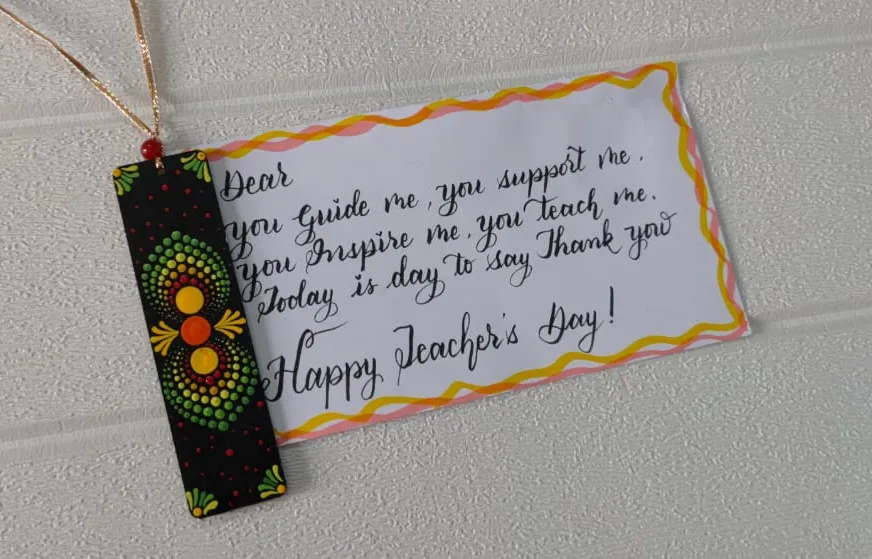 Dear
you Guide me, you support me.
you Inspire me, you teach me.
Today is day to say Thank you
Happy Teacher's Day!